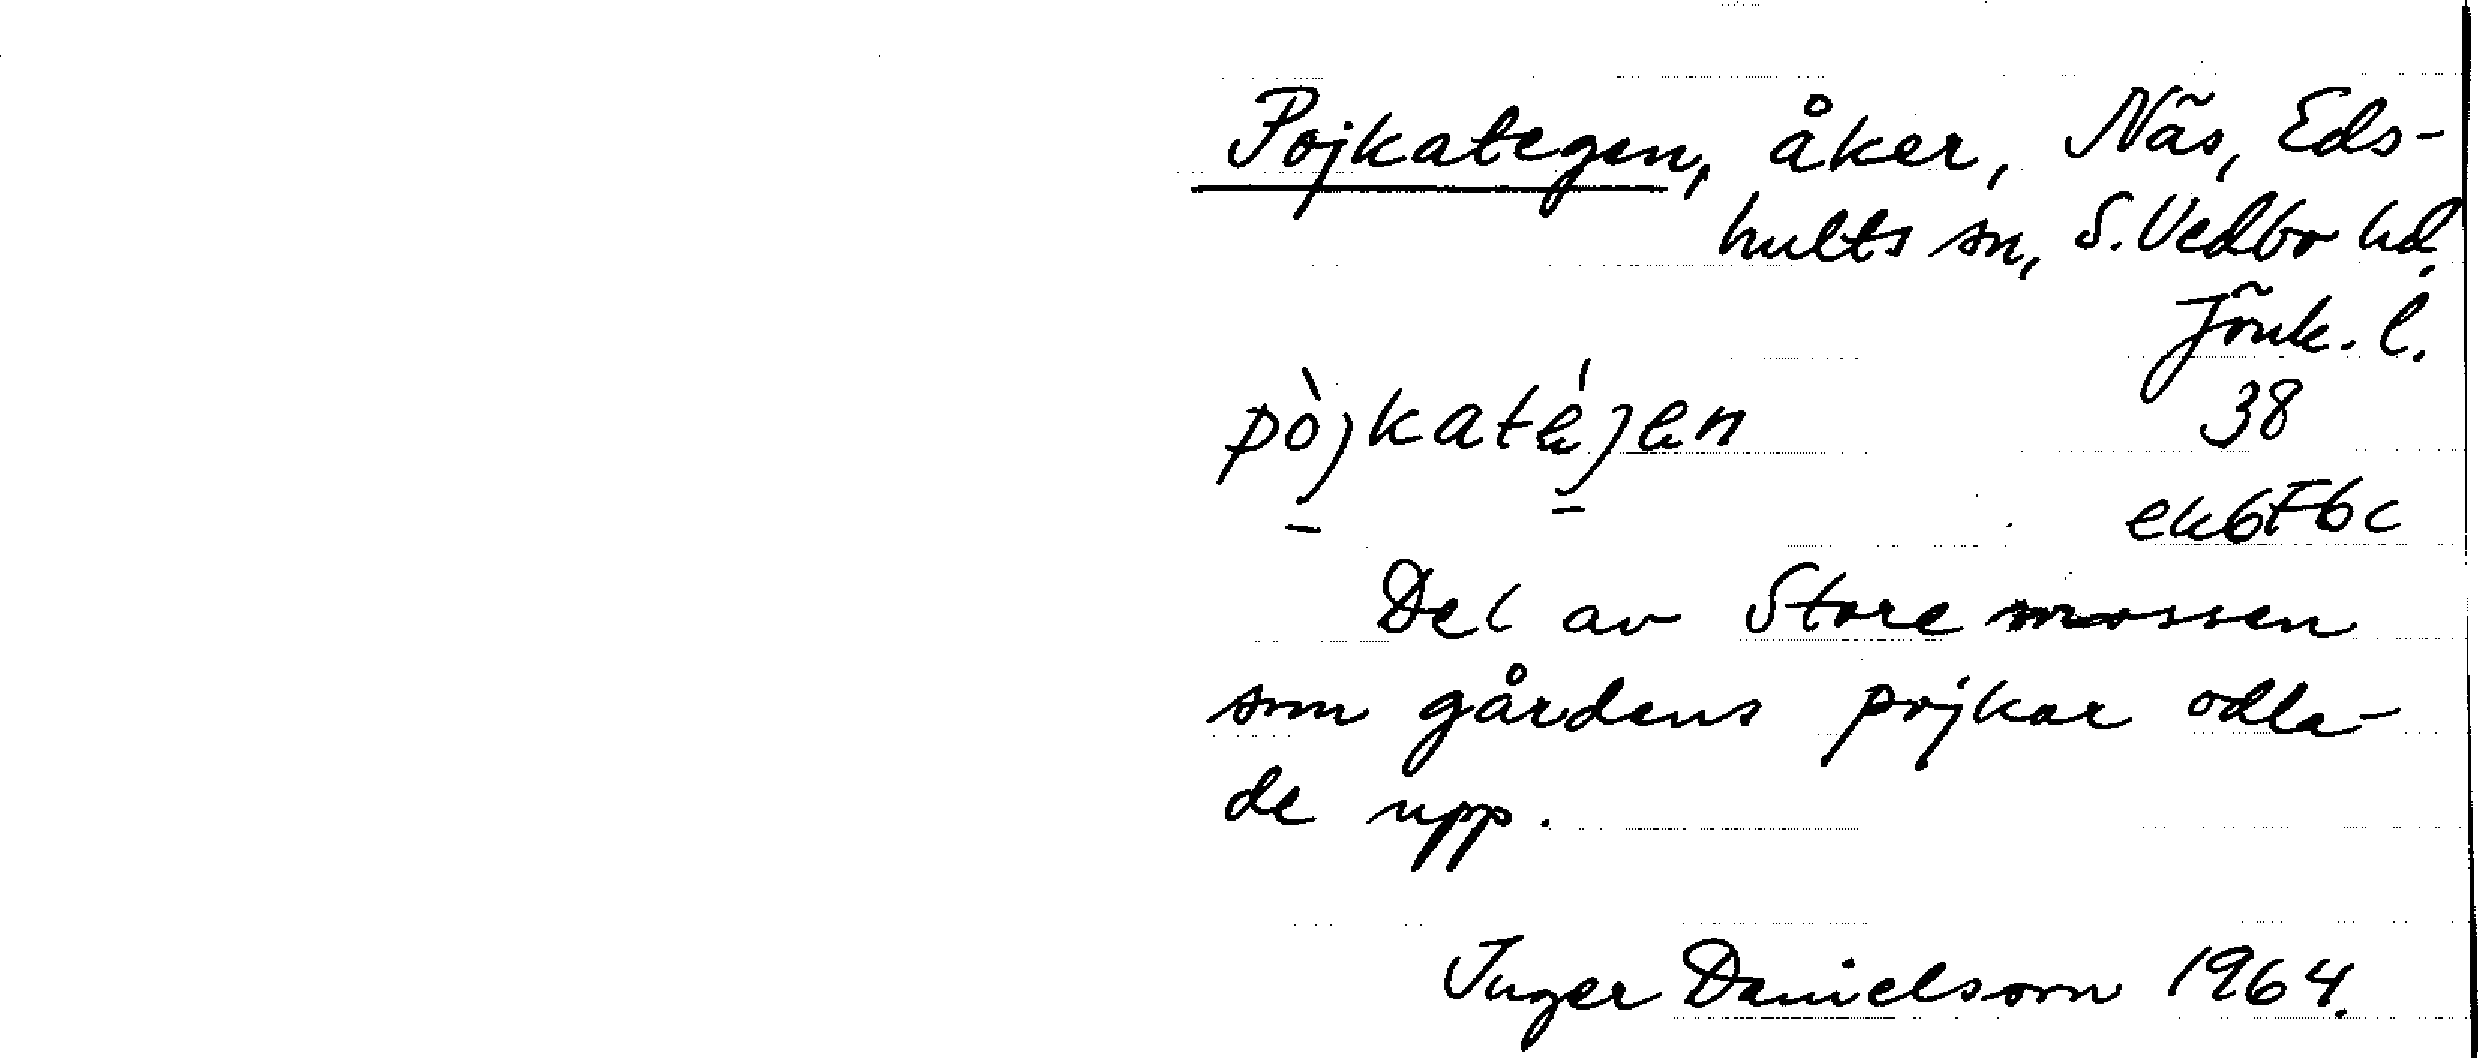 Pojkategen, åker, Näs, Eds-
hults sn, S. Vedbo hd.
Jönk. l.
pòjkatéjen 38
ek6F6c
Del av Store mossen
som gårdens pojkar odla-
de upp.
Inger Danielsson 1964.